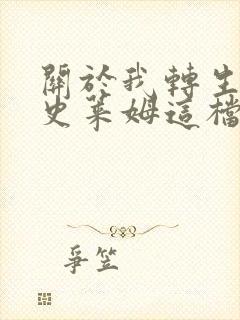 關於我轉生
史萊姆這檔
爭笠